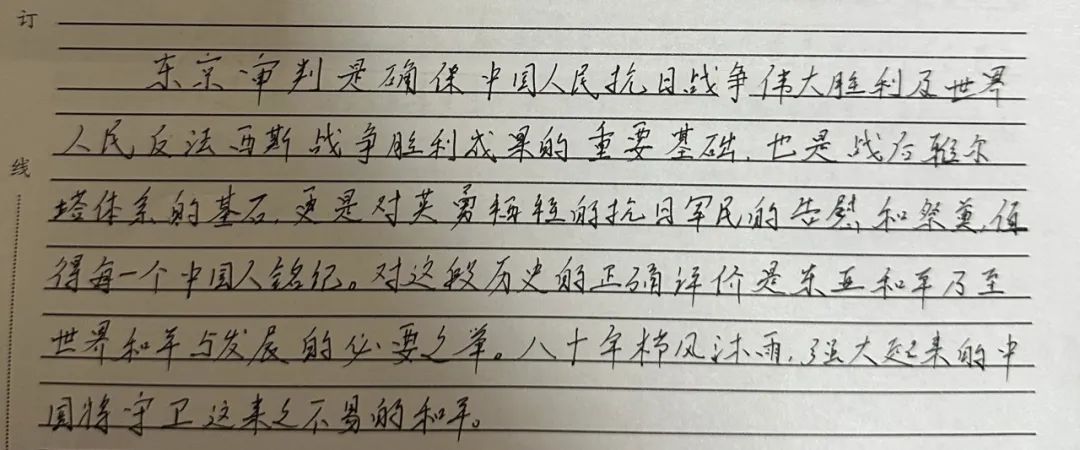 订
东京审判是确保中国人民抗日战争伟大胜利及世界
人民反法西斯战争胜利成果的重要基础,也是战后雅尔
线
塔体系的基石,更是对英勇牺牲的抗日军民的告慰和祭奠,值
得每一个中国人铭纪。对这段历史的正确评价是东亚和平乃至
世界和平与发展的必要之举。八十年栉风沐雨,强大起来的中
国将守卫这来之不易的和平。